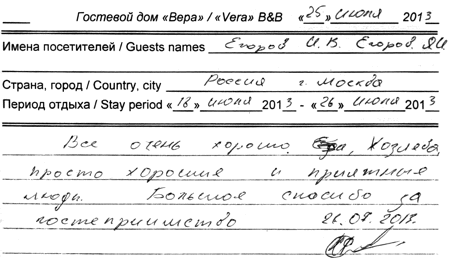 Гостевой дом «Вера» / «Vera» B&B «25» июля 2013
Имена посетителей / Guests names Егоров И.В. Егоров
Страна, город / Country, city Россия г. Москва
Период отдыха / Stay period «18» июля 2013 - «26» июля 2013
Все очень хорошо. Хозяева,
просто хорошие и приятные
люди. Большое спасибо за
гостеприимство 26.07.2013.